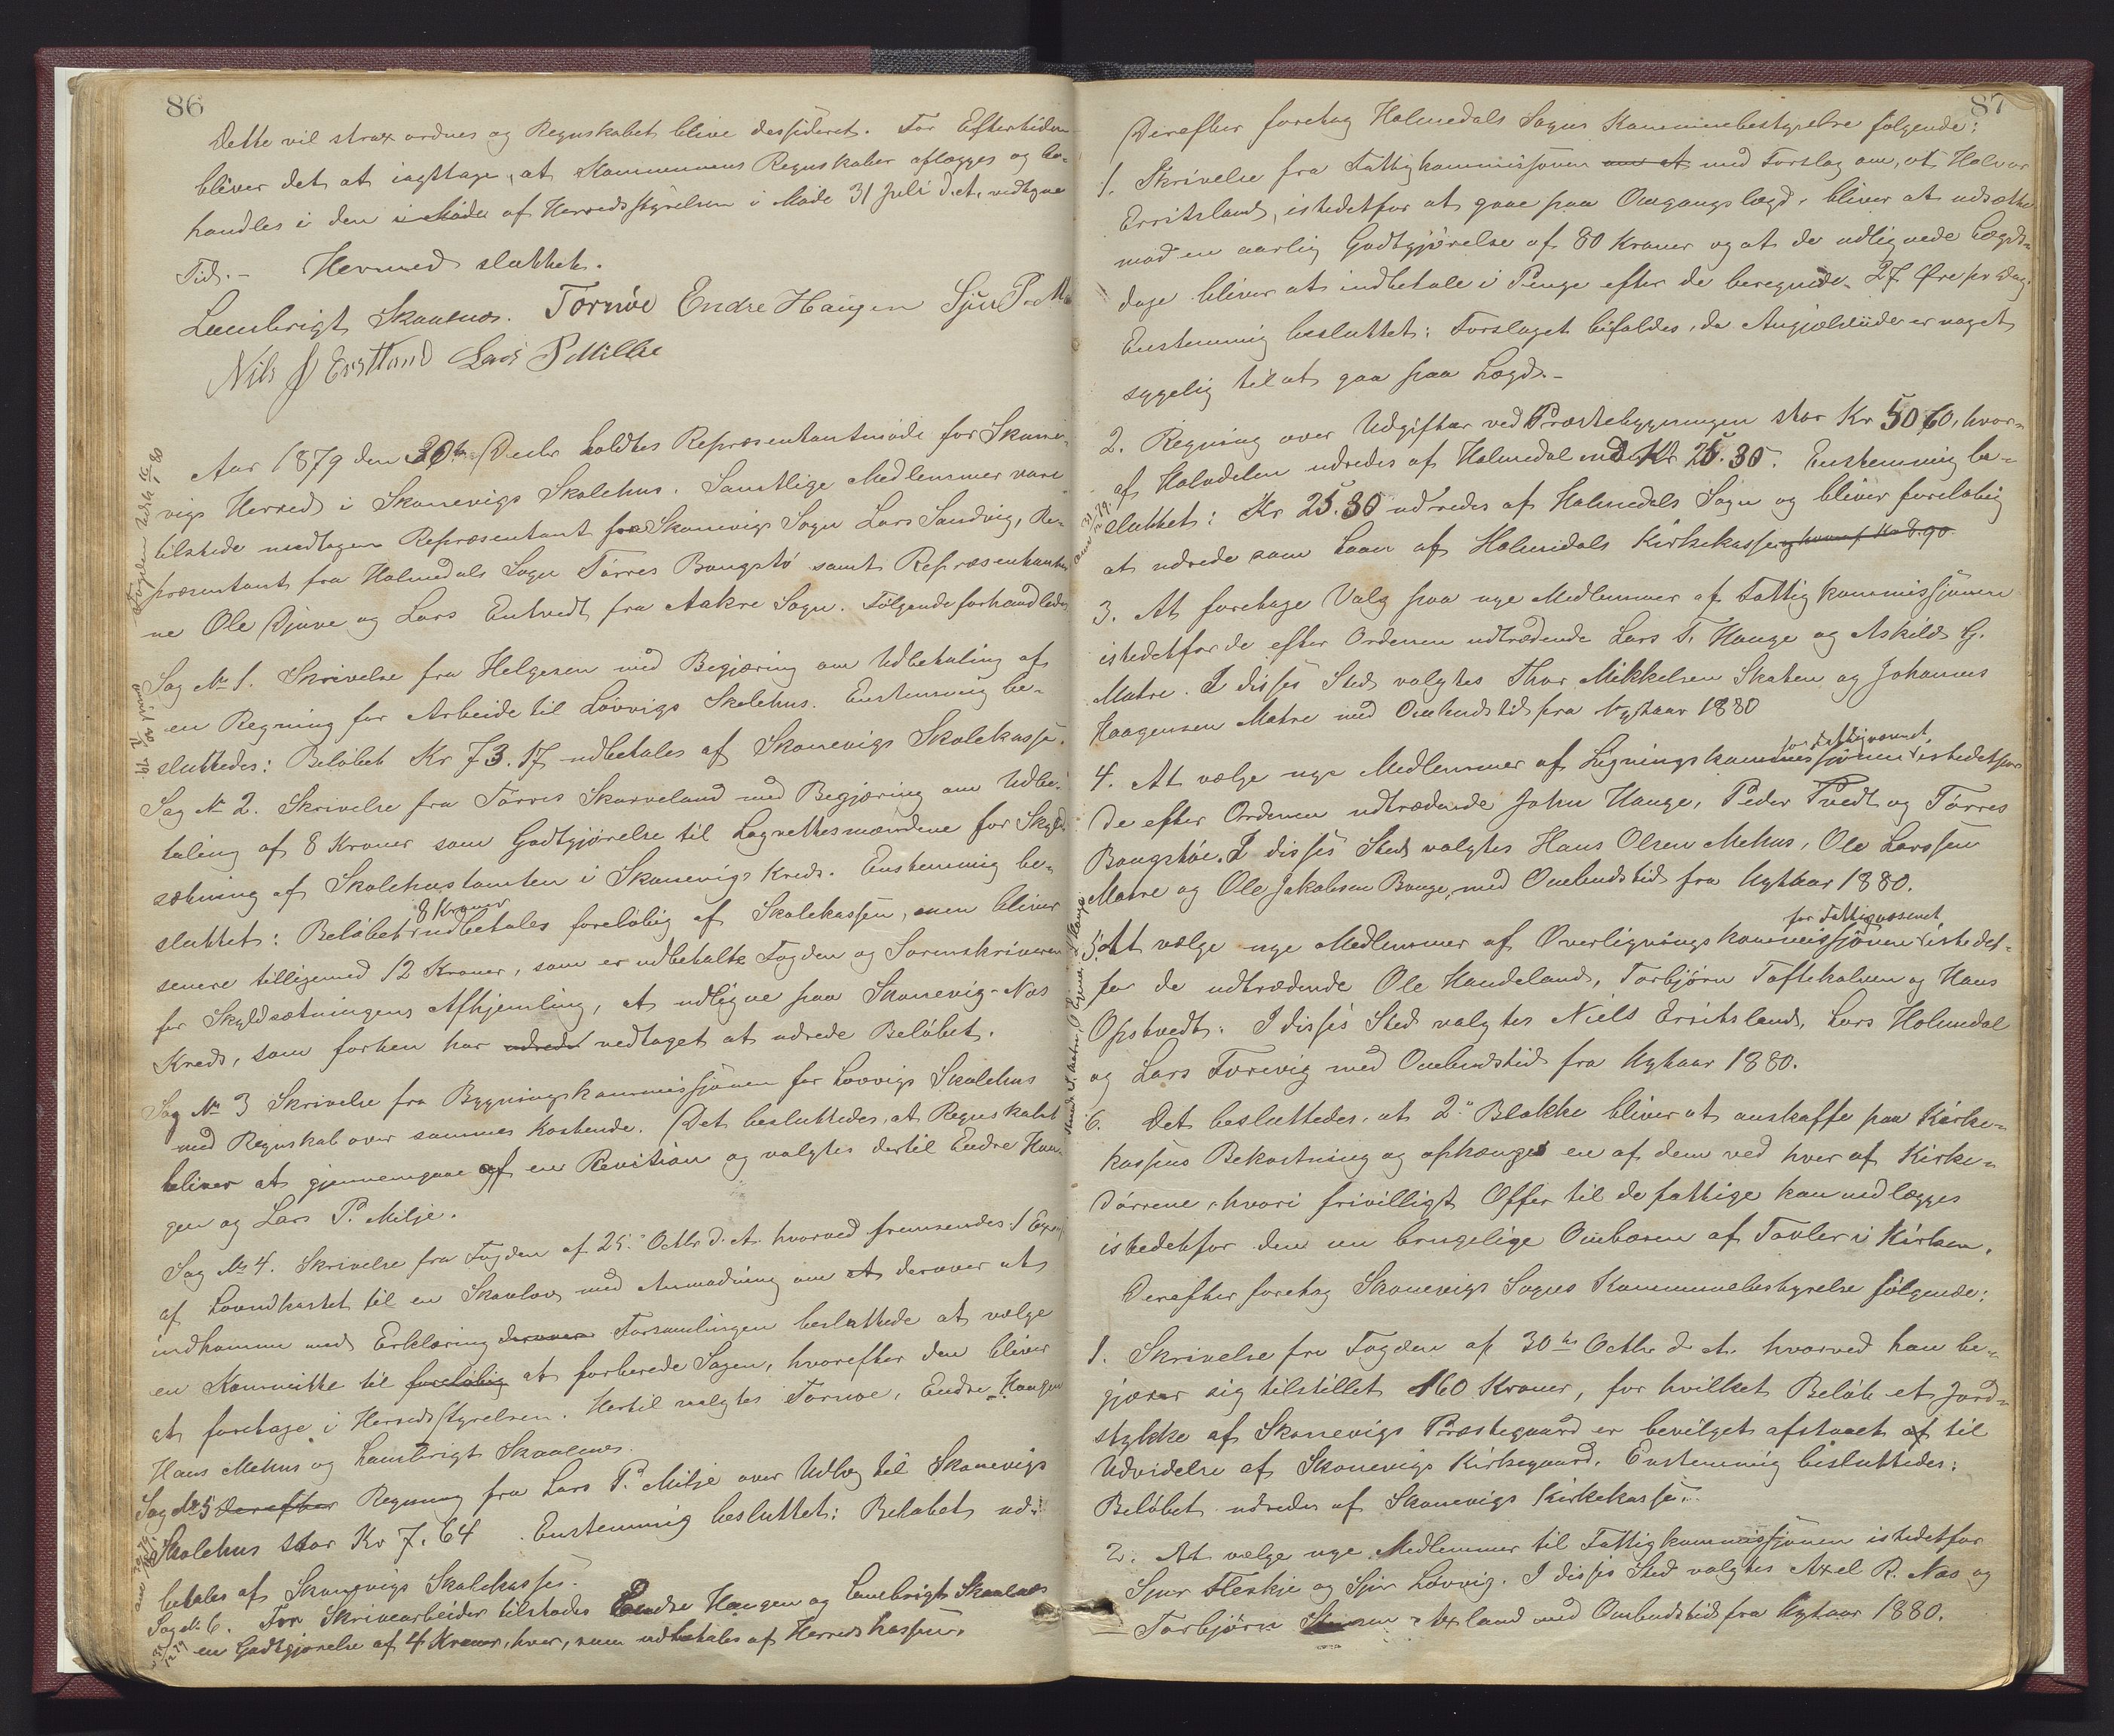 86
Dette vil strax ordnes og Regnskabet blive dessideret. For Eftertiden
bliver det at iagttage, at Kommunens Regnskaber aflægges og be-
handles i den i Møde af Herredsstyrelsen i Møde 31 Juli d.A. vedtagne
Tid. - Hermed sluttet.
Lambrigt Skaalnes. Tornøe Endre Haugen Sjur P. M
Nils J Erritland Lars P Millie
Aar 1879 den 30te Decbr holdtes Repræsentantmøde for Skone-
vigs Herred i Skonevigs Skolehus. Samtlige Medlemmer vare
tilstede undtagen Repræsentant fra Skonevigs Sogn Lars Sandvig, Re-
præsentant fra Holmedals Sogn Tørres Baugstø samt Repræsentanter-
ne Ole Djuve og Lars Entvedt fra Aakre Sogn. Følgende forhandledes
Sag No 1. Skrivelse fra Helgesen med Begjæring om Udbetaling af
en Regning for Arbeide til Løvvigs Skolehus. Enstemmig be-
sluttedes: Beløbet Kr 73.17 udbetales af Skonevigs Skolekasse.
Sag No 2. Skrivelse fra Tørres Skarveland med Begjæring om Udbe-
taling af 8 Kroner som Godtgjørelse til Lagrettesmændene for Skyld-
sætning af Skolehustomten i Skonevigs Kreds. Enstemmig be-
8 Kroner
sluttet: Beløbet udbetales foreløbig af Skolekassen, men bliver
senere tilligemed 12 Kroner, som er udbetalte Fogden og Sorenskriveren
for Skyldsætningens Afhjemling, at udligne paa Skonevig-Næs
Kreds, som forhen har udredet vedtaget at udrede Beløbet.
Sag No 3 Skrivelse fra Bygningskommissjonen for Løvvigs Skolehus
med Regnskab over sammes Kostende. Det besluttedes, at Regnskabet
bliver at gjennemgaae af en Revision og valgtes dertil Endre Hau-
gen og Lars P. Milje.
Sag No 4. Skrivelse fra Fogden af 25de Octbr d.A. hvorved fremsendes 1 Expl
af Lovudkastet til en Skovlov med Anmodning om at derover at
indkomme med Erklæring derover Forsamlingen besluttede at vælge
en Kommitte til foreløbig at forberede Sagen, hvorefter den bliver
at foretage i Herredsstyrelsen. Hertil valgtes Tornøe, Endre Haugen
Hans Mehus og Lambrigt Skaalnes.
Sag No 5 Derefter Regning fra Lars P. Milje over Udlæg til Skonevigs
Skolehus stor Kr 7.64. Enstemmig besluttet: Beløbet ud-
betales af Skonevigs Skolekasse.
Sag No 6. For Skrivearbeider tilstodes Endre Haugen og Lambrigt Skaalnes
en Godtgjørelse af 4 Kroner, hver, som udbetales af Herredskassen.
87
Derefter foretog Holmedals Sogns Kommunebestyrelse følgende:
1. Skrivelse fra Fattigkommissjonen om at med Forslag om, at Halvor
Erritsland, istedetfor at gaae paa Omgangslægd, bliver at udsætte
mod en aarlig Godtgjørelse af 80 Kroner og at de udlignede Lægds-
dage bliver at indbetale i Penge efter de beregnede 27 Øre pr Dag.
Enstemmig besluttet: Forslaget bifaldes, da Angjældende er noget
sygelig til at gaa paa Lægd. -
2. Regning over Udgifter ved Præstebygningen stor Kr 50.60, hvor-
af Halvdelen udredes af Holmedal med Kr 25.30. Enstemmig be-
sluttet: Kr 25.30 udredes af Holmedals Sogn og bliver foreløbig
at udrede som Laan af Holmedals Kirkekasse, hvoraf Kr 8.90
3. At foretage Valg paa nye Medlemmer af Fattigkommissjonen
istedetfor de efter Ordenen udtrædende Lars T. Hauge og Askild G.
Matre. I disses Sted valgtes Thor Mikkelsen Skaten og Johannes
Haagensen Matre med Ombudstid fra Nytaar 1880
for Fattigvæsenet
4. At vælge nye Medlemmer af Ligningskommissjonen istedetfor
de efter Ordenen udtrædende John Hauge, Peder Tvedt og Tørres
Baugstøe. I disses Sted valgtes Hans Olsen Mehus, Ole Larssen
Matre og Ole Jakobsen Bauge, med Ombudstid fra Nytaar 1880.
for Fattigvæsenet
5. At vælge nye Medlemmer af Overligningskommissjonen istedet-
for de udtrædende Ole Handeland, Torbjørn Toftekalven og Hans
Opstvedt. I disses Sted valgtes Niels Erritsland, Lars Holmedal
og Lars Torevig med Ombudstid fra Nytaar 1880.
6. Det besluttedes, at 2de Blokke bliver at anskaffe paa Kirke-
kassens Bekostning og ophænges en af dem ved hver af Kirke-
dørrene, hvori frivilligt Offer til de fattige kan nedlægges
istedetfor den nu brugelige Ombæren af Tavler i Kirken.
Derefter foretog Skonevigs Sogns Kommunebestyrelse følgende:
1. Skrivelse fra Fogden af 30te Octbr d.A. hvorved han be-
gjærer sig tilstillet 160 Kroner, for hvilket Beløb et Jord-
stykke af Skonevigs Præstegaard er bevilget afstaaet af til
Udvidelse af Skonevigs Kirkegaard. Enstemmig besluttedes:
Beløbet udredes af Skonevigs Kirkekasse.
2. At vælge nye Medlemmer til Fattigkommissjonen istedetfor
Sjur Fleskje og Sjur Løvvig. I disses Sted valgtes Axel R. Næs og
Torbjørn Axland med Ombudstid fra Nytaar 1880.